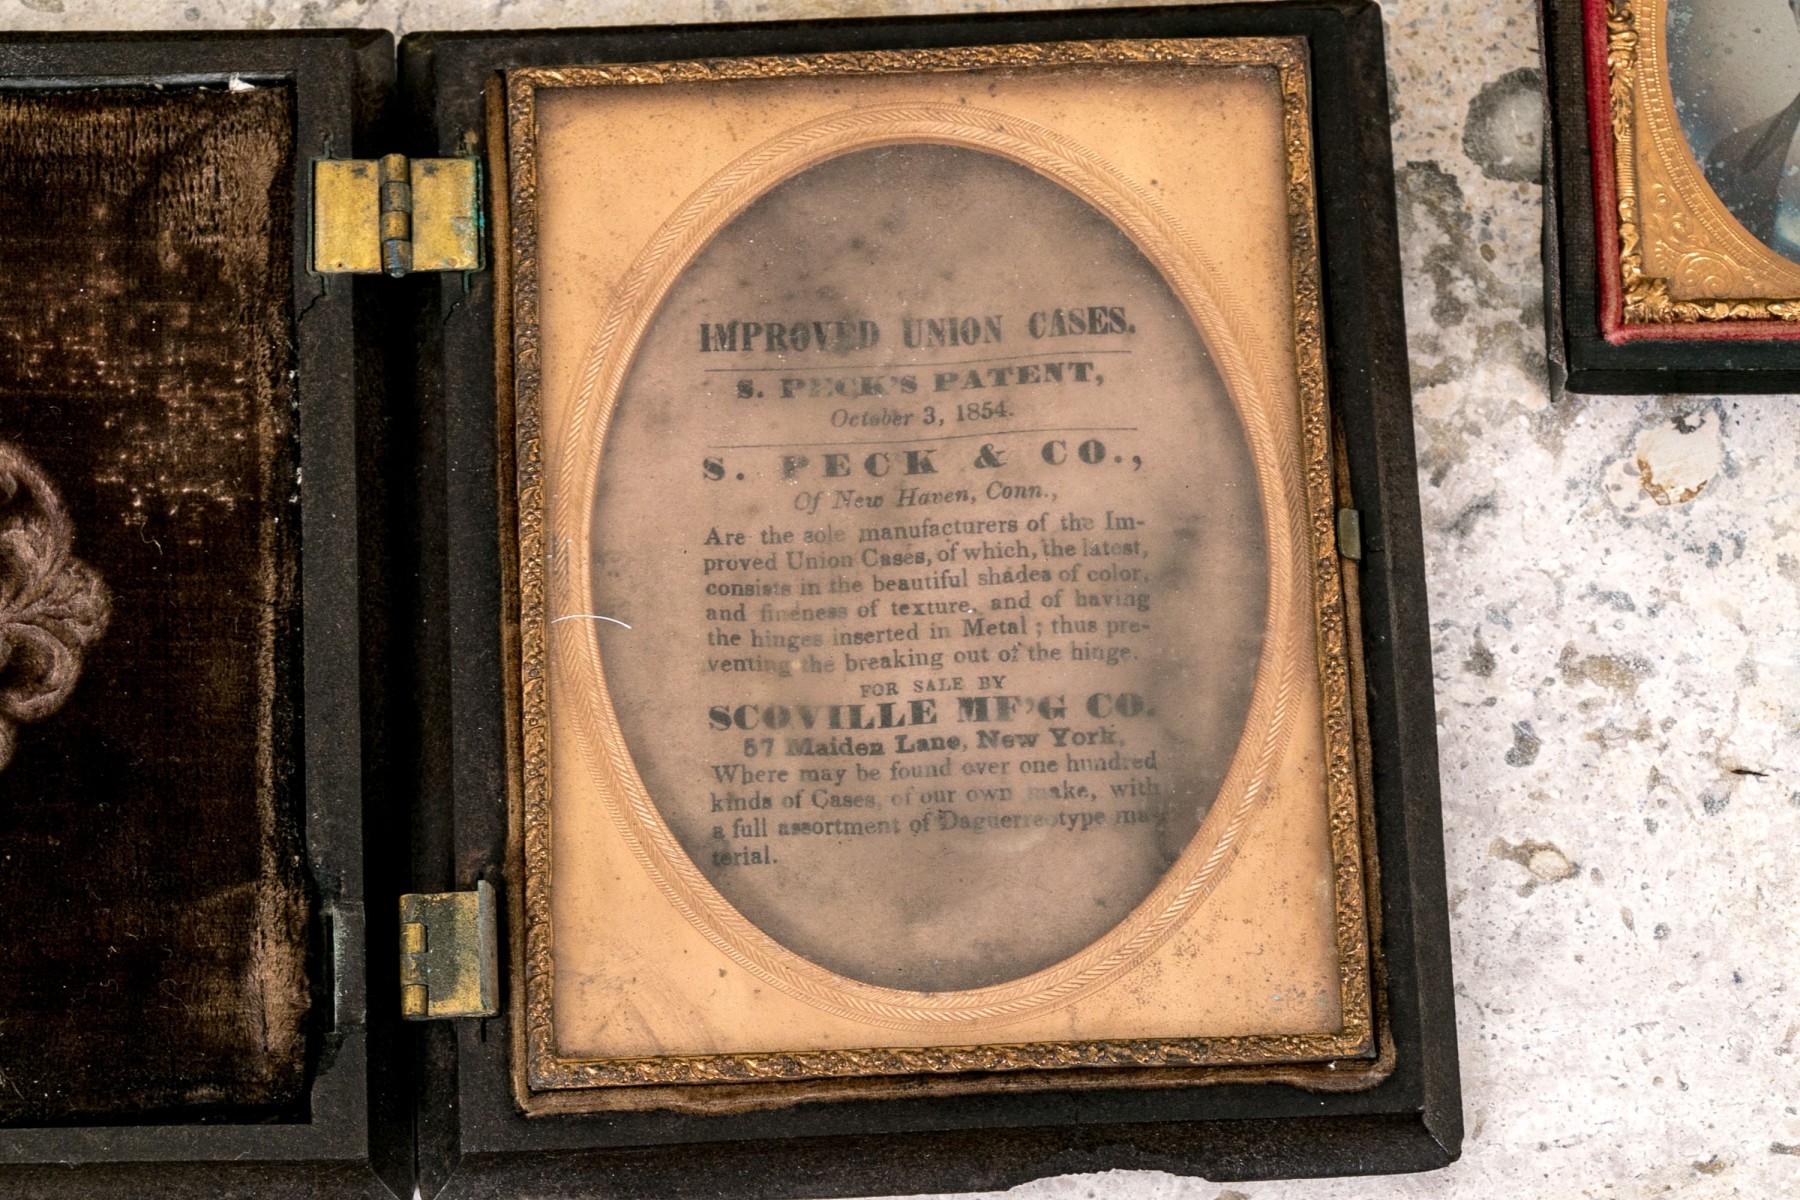 IMPROVED UNION CASES.
S. PECK'S PATENT,
October 3, 1854.
S. PECK & CO.,
Of New Haven, Conn.,
Are the sole manufacturers of the Im-
proved Union Cases, of which, the latest,
consists in the beautiful shades of color,
and fineness of texture, and of having
the hinges inserted in Metal ; thus pre-
venting the breaking out of the hinge.
FOR SALE BY
SCOVILLE MF'G CO.
57 Maiden Lane, New York,
Where may be found over one hundred
kinds of Cases, of our own make, with
a full assortment of Daguerreotype ma-
terial.